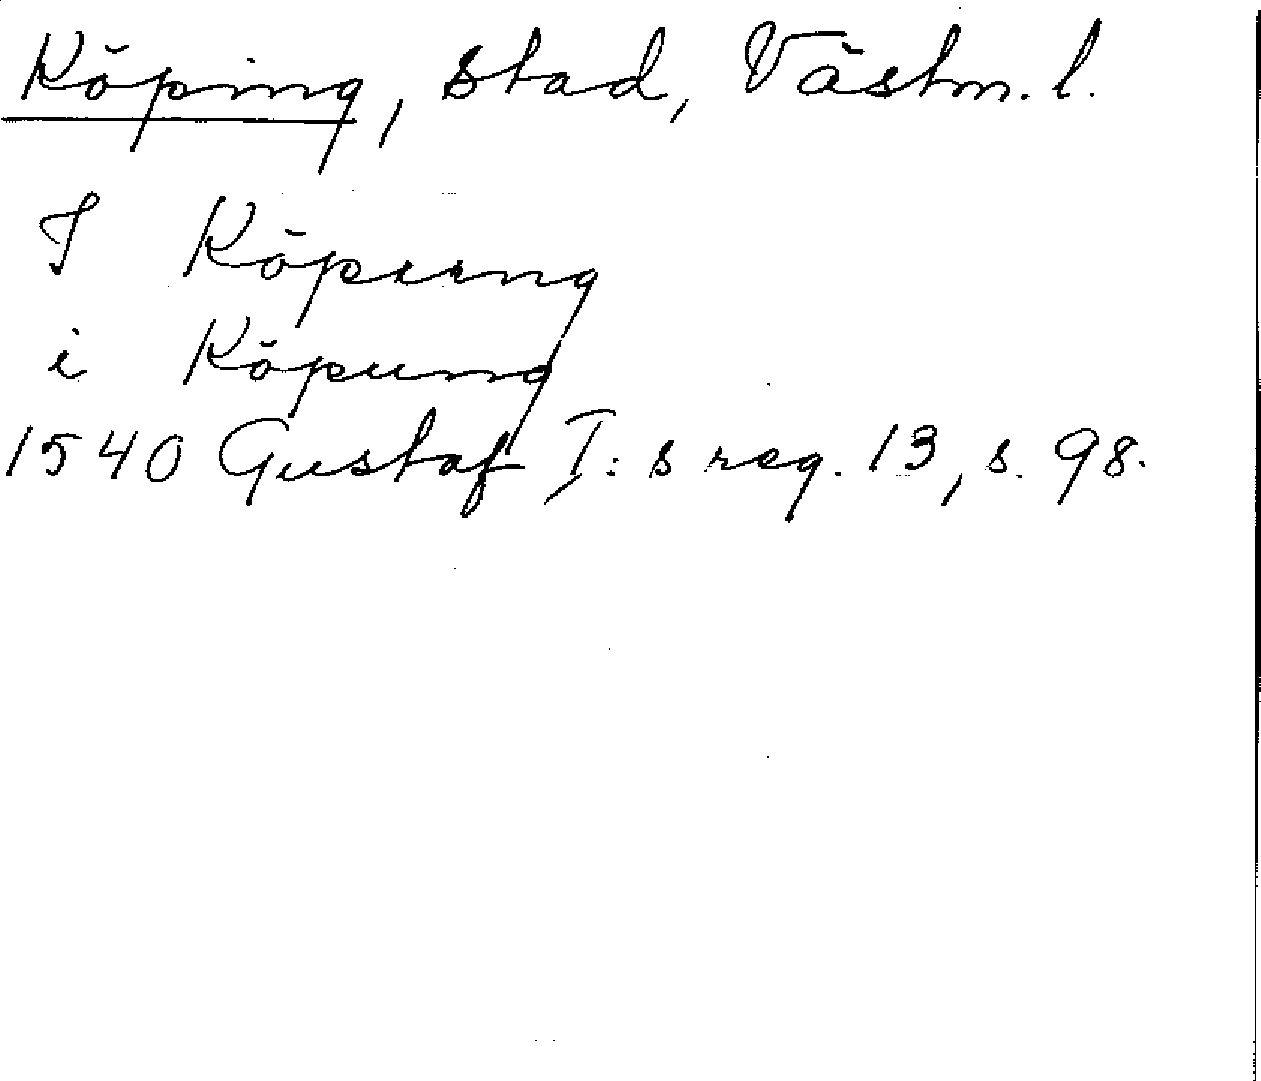 Köping, stad, Västm. l.
I Köpung
i Köpung
1540 Gustaf I:s reg. 13, s. 98.